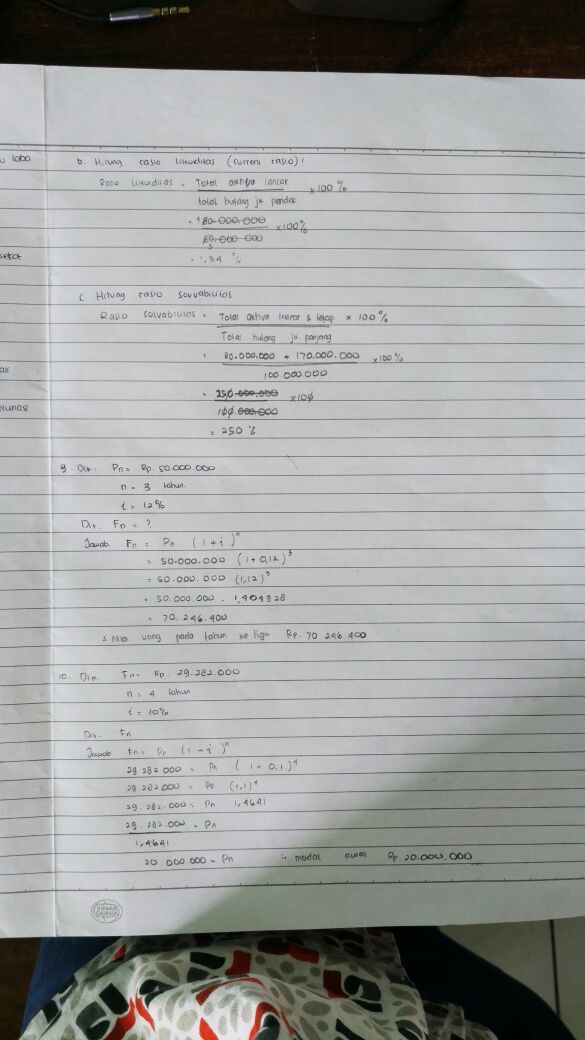 laba
b. Hitung rasio likuiditas (current rasio)!
Rasio Likuiditas = Total aktiva lancar x 100 %
total hutang jk pendek
= 80.000.000 x 100%
60.000 000
= 1,34 %
c. Hitung rasio solvabilitas
Rasio solvabilitas = Total aktiva lancar & tetap x 100 %
Total hutang jk panjang
= 80.000.000 + 170.000.000 x 100 %
100 000.000
= 250.000.000 x 100
100.000.000
= 250 %
elunasi
9. Dik: Pn = Rp. 50.000.000
n = 3 tahun
i = 12%
Dit. Fn = ?
Jawab. Fn = Pn (1+i)ⁿ
= 50.000.000 (1+0,12)³
= 50.000.000 (1,12)³
= 50.000.000 . 1,404928
= 70.246.400
∴ Nilai uang pada tahun ke tiga Rp. 70 246 400
10. Dik. Fn = Rp. 29.282.000
n = 4 tahun
i = 10%
Dit. Fn
Jawab Fn = Pn (1-i)ⁿ
29 282 000 = Pn (1+0,1)⁴
29 282 000 = Pn (1,1)⁴
29.282.000 = Pn 1,4641
29.282.000 = Pn
1,4641
20.000 000 = Pn ∴ modal awal Rp 20.000.000
SINAR DUNIA